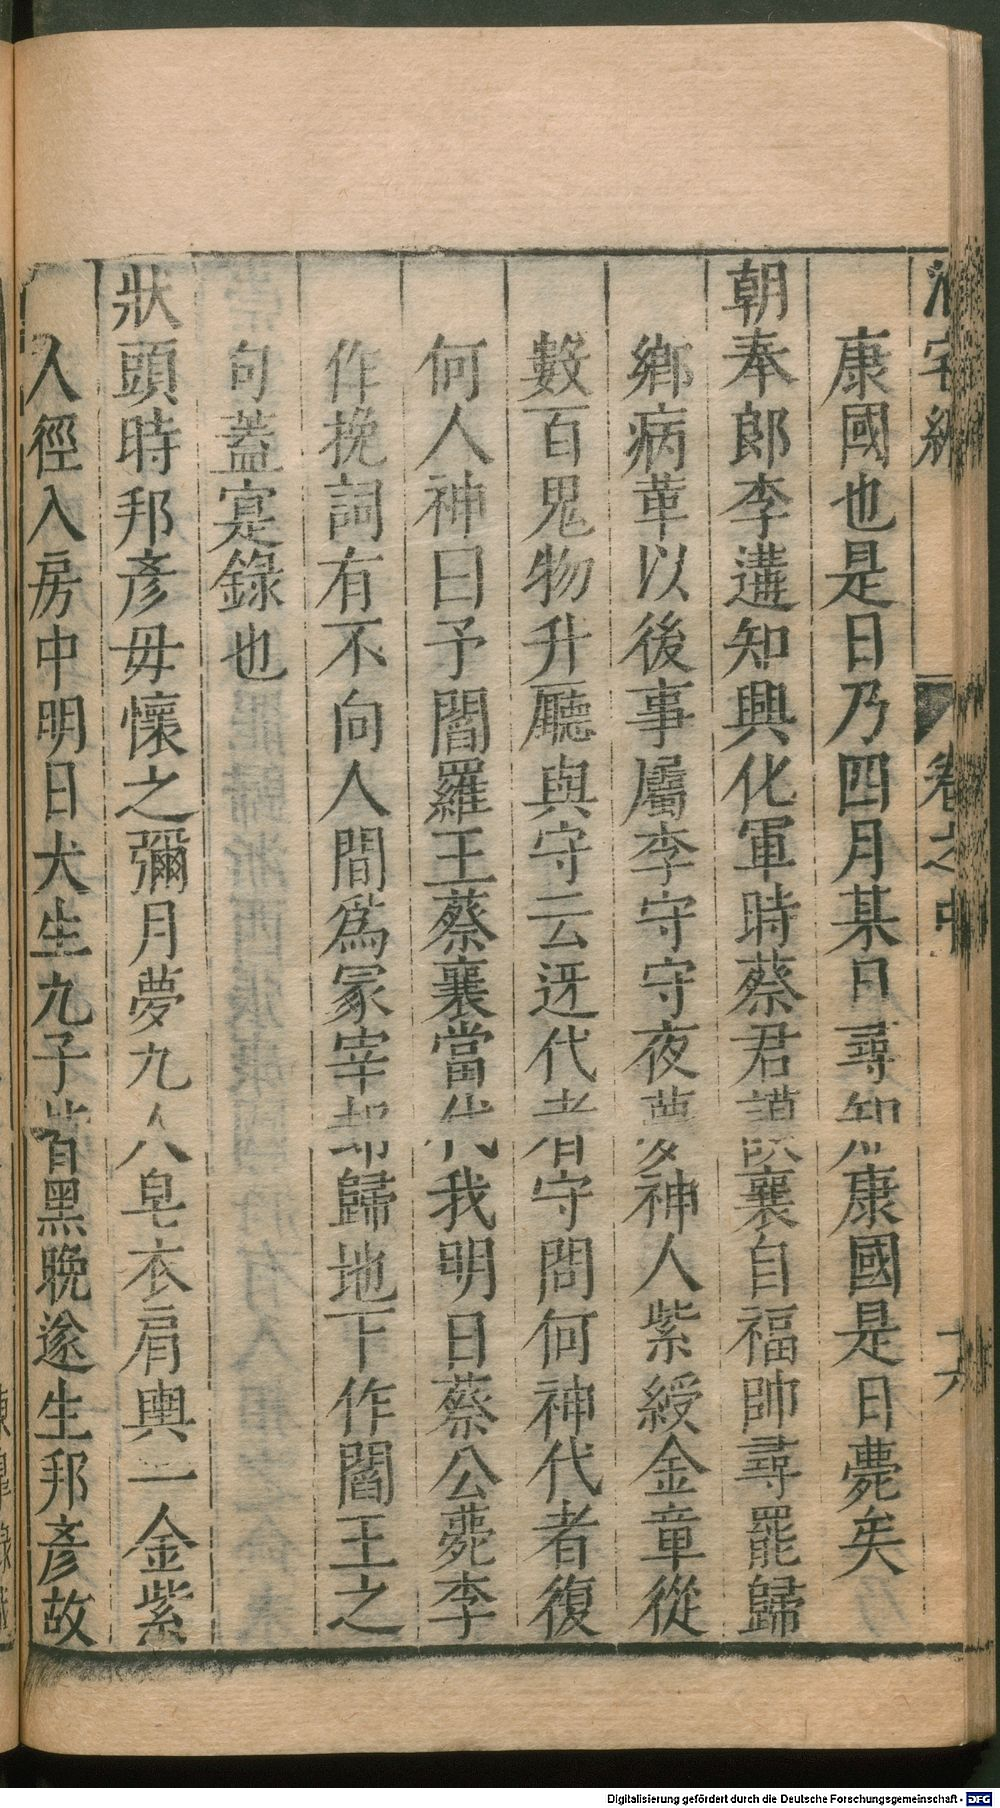 康國也是日乃四月某日尋知康國是日薨矣
朝奉郎李遘知興化軍時蔡君謨襄自福帥尋罷歸
鄉病革以後事屬李守守夜夢神人紫綬金章從
數百鬼物升廳與守云迓代者守問何神代者復
何人神曰予閻羅王蔡襄當代我明日蔡公薨李
作挽詞有不向人間爲冢宰却歸地下作閻王之
句蓋寔錄也
狀頭時邦彥毋懷之彌月夢九人皂衣肩輿一金紫
人徑入房中明日犬生九子皆黑晚遂生邦彥故
卷之中
Digitalisierung gefördert durch die Deutsche Forschungsgemeinschaft - DFG